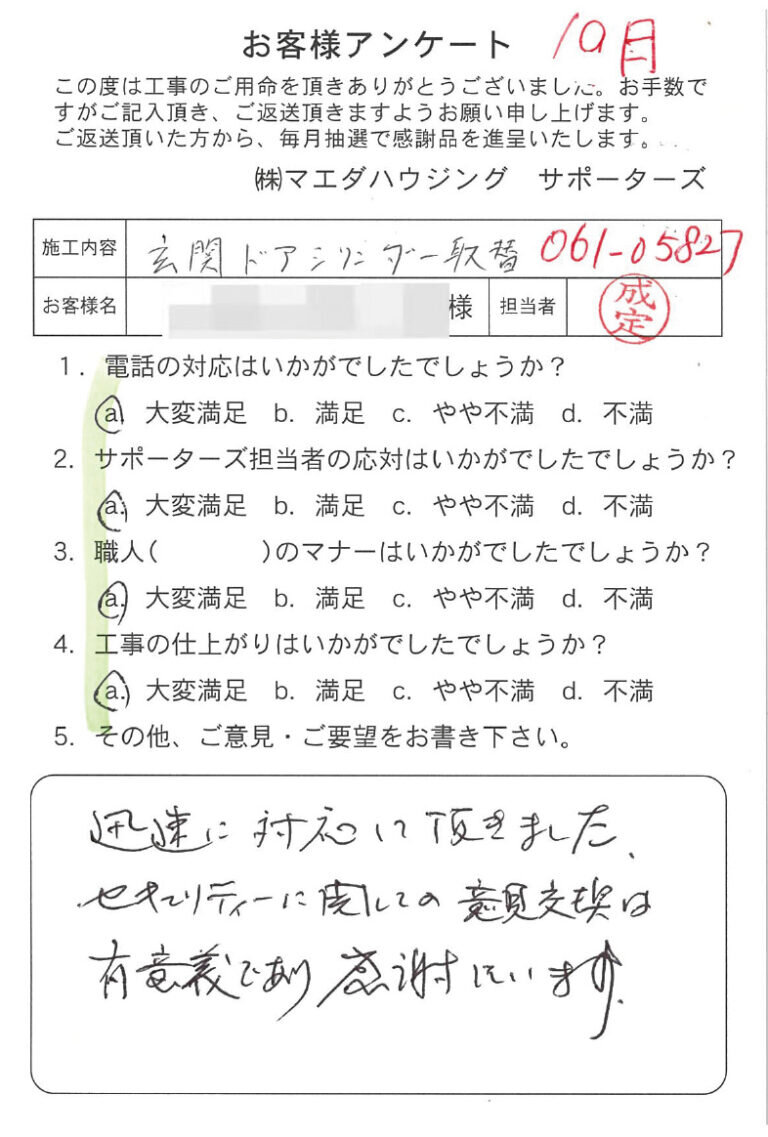 お客様アンケート 10月
この度は工事のご用命を頂きありがとうございました。お手数で
すがご記入頂き、ご返送頂きますようお願い申し上げます。
ご返送頂いた方から、毎月抽選で感謝品を進呈いたします。
㈱マエダハウジング サポーターズ
施工内容 玄関ドアシリンダー取替 061-05827
お客様名 様 担当者 成定
1. 電話の対応はいかがでしたでしょうか？
a. 大変満足 b. 満足 c. やや不満 d. 不満
2. サポーターズ担当者の応対はいかがでしたでしょうか？
a. 大変満足 b. 満足 c. やや不満 d. 不満
3. 職人( )のマナーはいかがでしたでしょうか？
a. 大変満足 b. 満足 c. やや不満 d. 不満
4. 工事の仕上がりはいかがでしたでしょうか？
a. 大変満足 b. 満足 c. やや不満 d. 不満
5. その他、ご意見・ご要望をお書き下さい。
迅速に対応して頂きました、
セキュリティーに関しての意見交換は
有意義であり感謝しています。